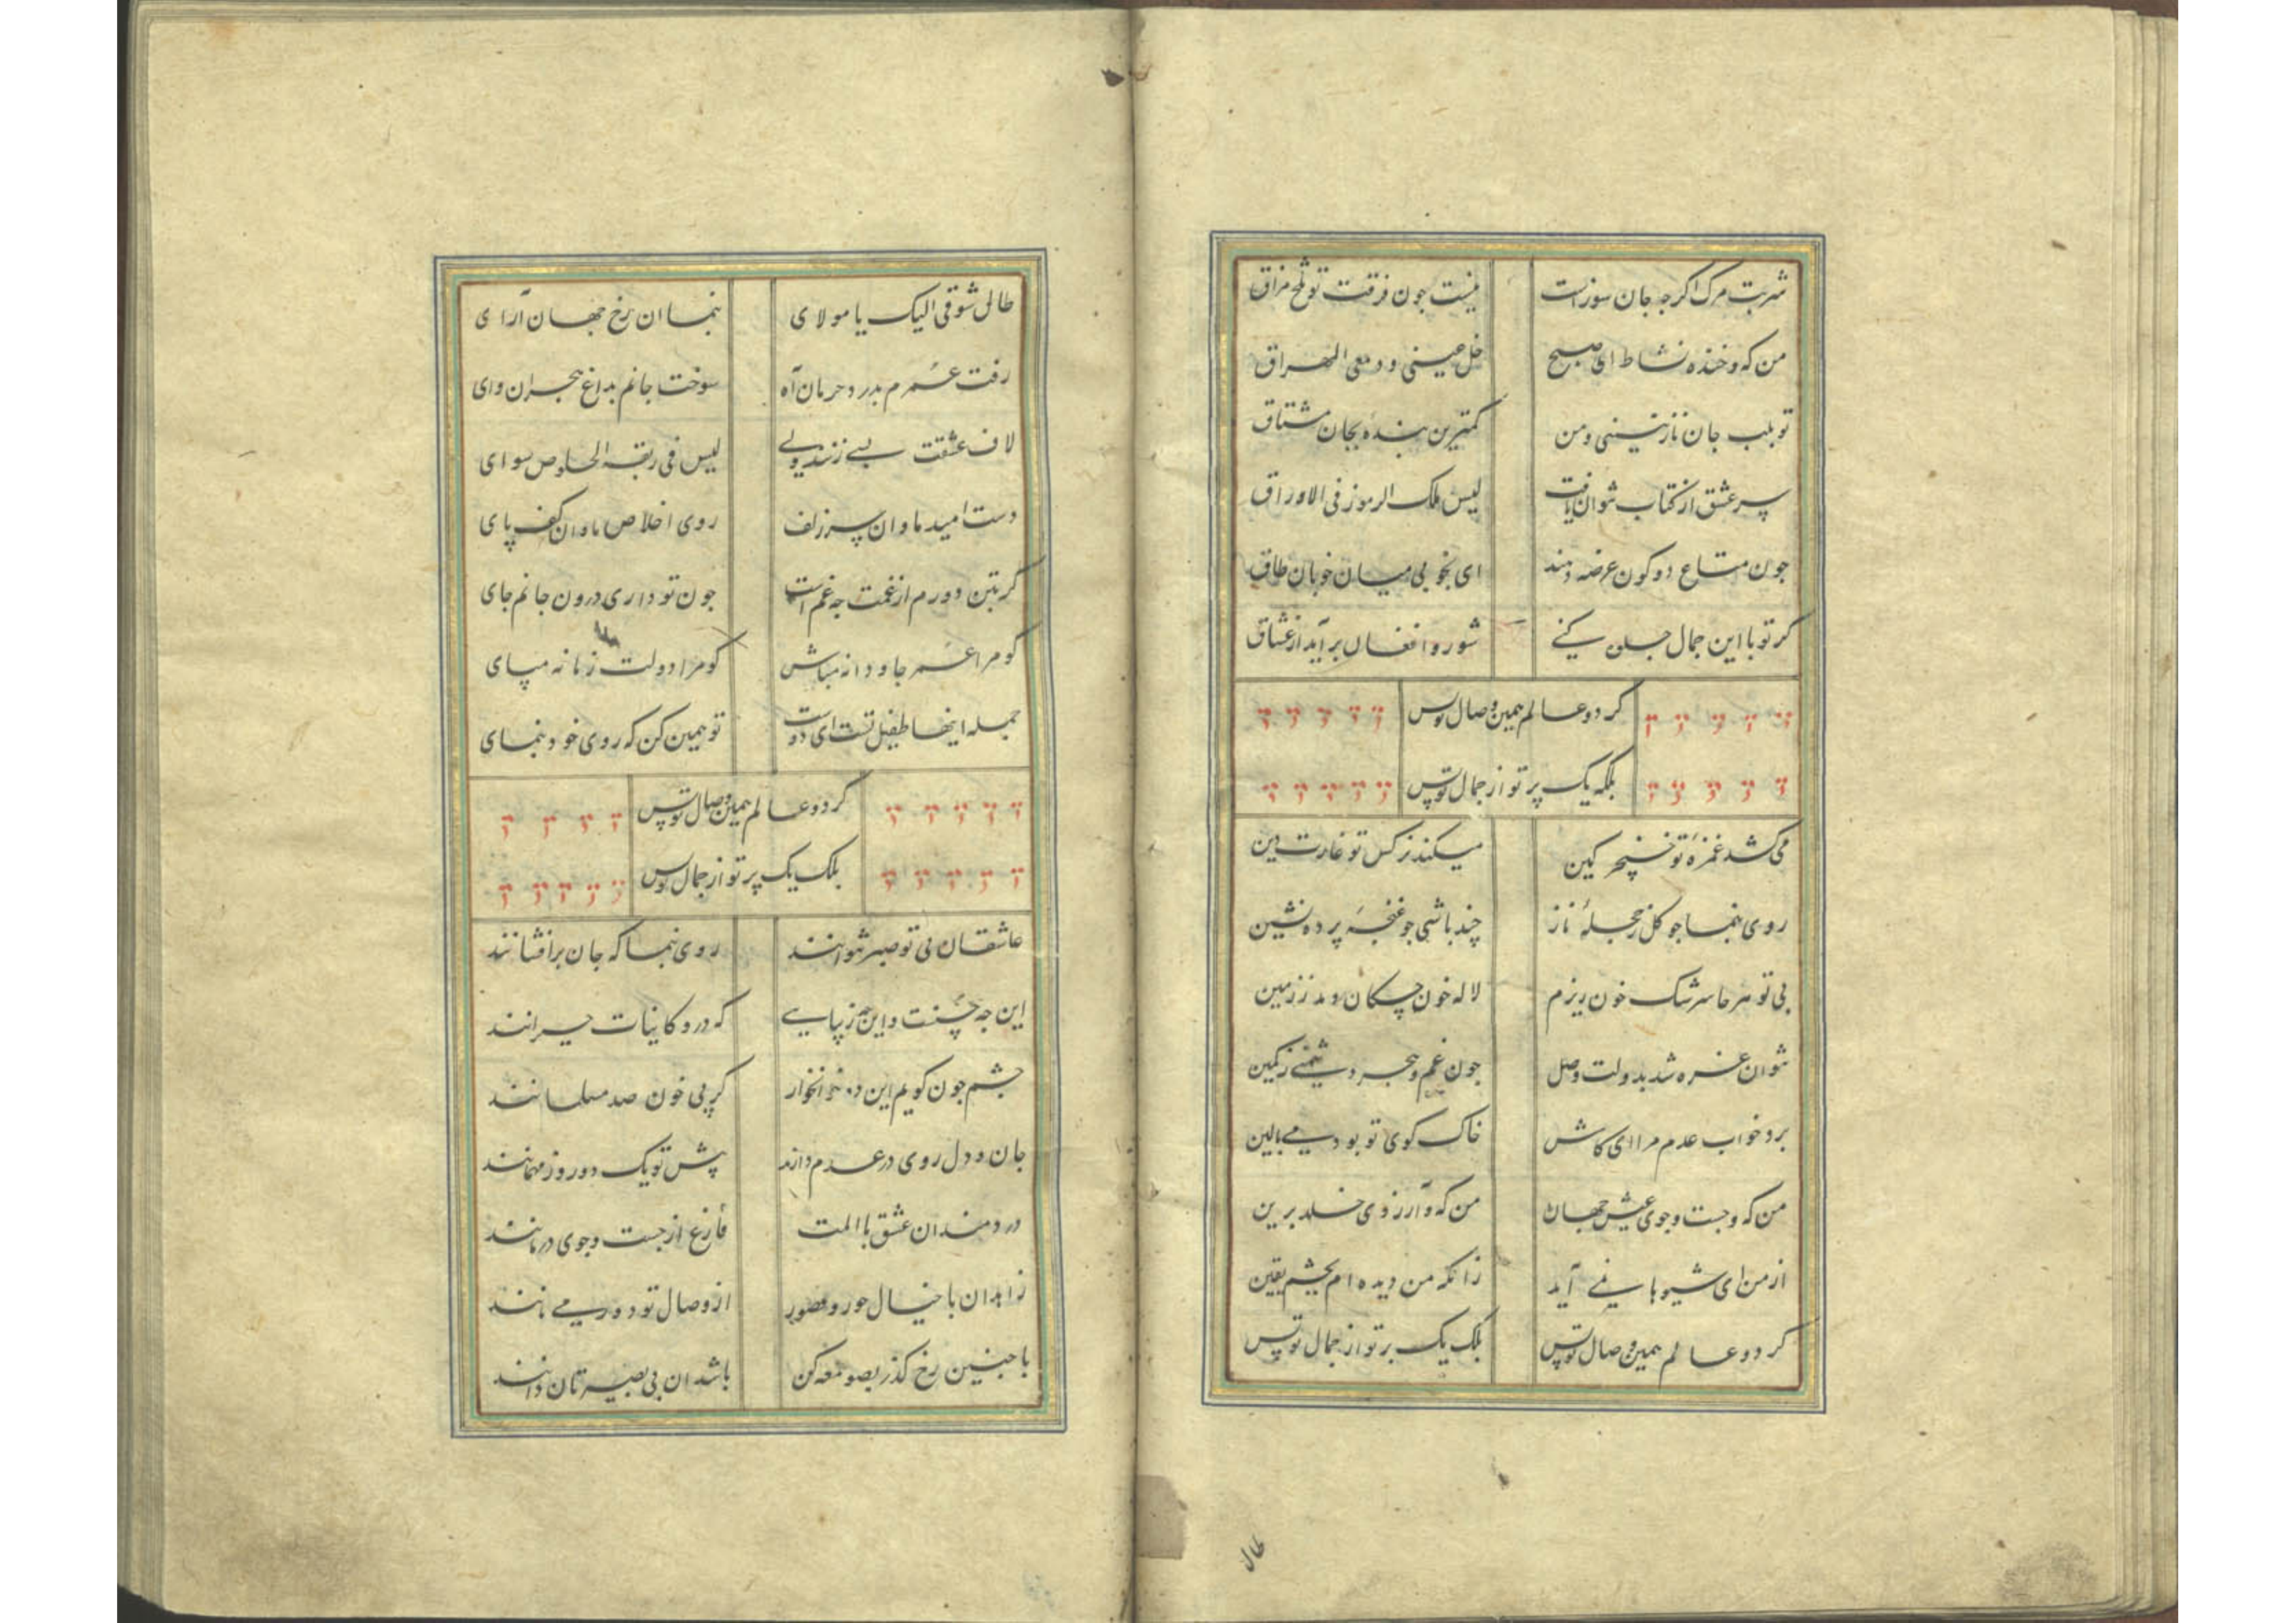 شربت مرک اکرجه جان سوزاست نیست جون فرقت تو تلخ مزاق
من که و خنده نشاط ای صبح خل عینی و دمعی المهراق
تو بلب جان نازنینی و من کمترین بنده بجان مشتاق
سر عشق از کتاب نتوان یافت لیس تلک الرموز فی الاوراق
جون متاع دو کون عرضه دهند ای بخوبی میان خوبان طاق
کر تو با این جمال جلوه کنی شور و افغان برآید از عشاق
کر دو عالم همین وصال توبس
بلکه یک پرتو از جمال توبس
می کشد غمزهٔ تو خنجر کین میکند نرکس تو غارت دین
روی بنما جو کل ز حجلهٔ ناز چند باشی جو غنچه پرده نشین
بی تو هر جا سرشک خون ریزم لاله خون چکان دمد ز زمین
نتوان غره شد بدولت وصل جون غم و هجر دشمنی ز کمین
برد خواب عدم مرا ای کاش خاک کوی تو بودمی بالین
من که و جست و جوی عیش جهان من که و آرزوی خلد برین
از من ای شیوها نمی آید زانکه من دیده ام بجشم یقین
کر دو عالم همین وصال توبس بلک یک برتو از جمال توبس
طال
طال شوقی الیک یا مولای بنما ان رخ جهان آرای
رفت عمرم بدرد حرمان آه سوخت جانم بداغ هجران وای
لاف عشقت بسی زنند ولی لیس فی ربقه الخلوص سوای
دست امید ما و ان سر زلف روی اخلاص ما و ان کف پای
کر بتن دورم از غمت جه غم است جون تو داری درون جانم جای
کو مرا عمر جاودانه مباش کو مرا دولت زمانه مپای
جمله اینها طفیل تست ای دوست تو همین کن که روی خود بنمای
کر دو عالم همین وصال توبس
بلک یک پرتو از جمال توبس
عاشقان بی تو صبر نتوانند روی بنما که جان برافشانند
این جه حسنت و این جه زیبایی که درو کاینات حیرانند
جشم جون کویم این دو خوانخوار کز پی خون صد مسلمانند
جان و دل روی در عدم دارند پیش تو یک دو روز مهمانند
دردمندان عشق با المت فارغ از جست و جوی درمانند
زاهدان با خیال حور و قصور از وصال تو دور می مانند
با جنین رخ کذر بصومعه کن باشد ان بی بصیرتان دانند